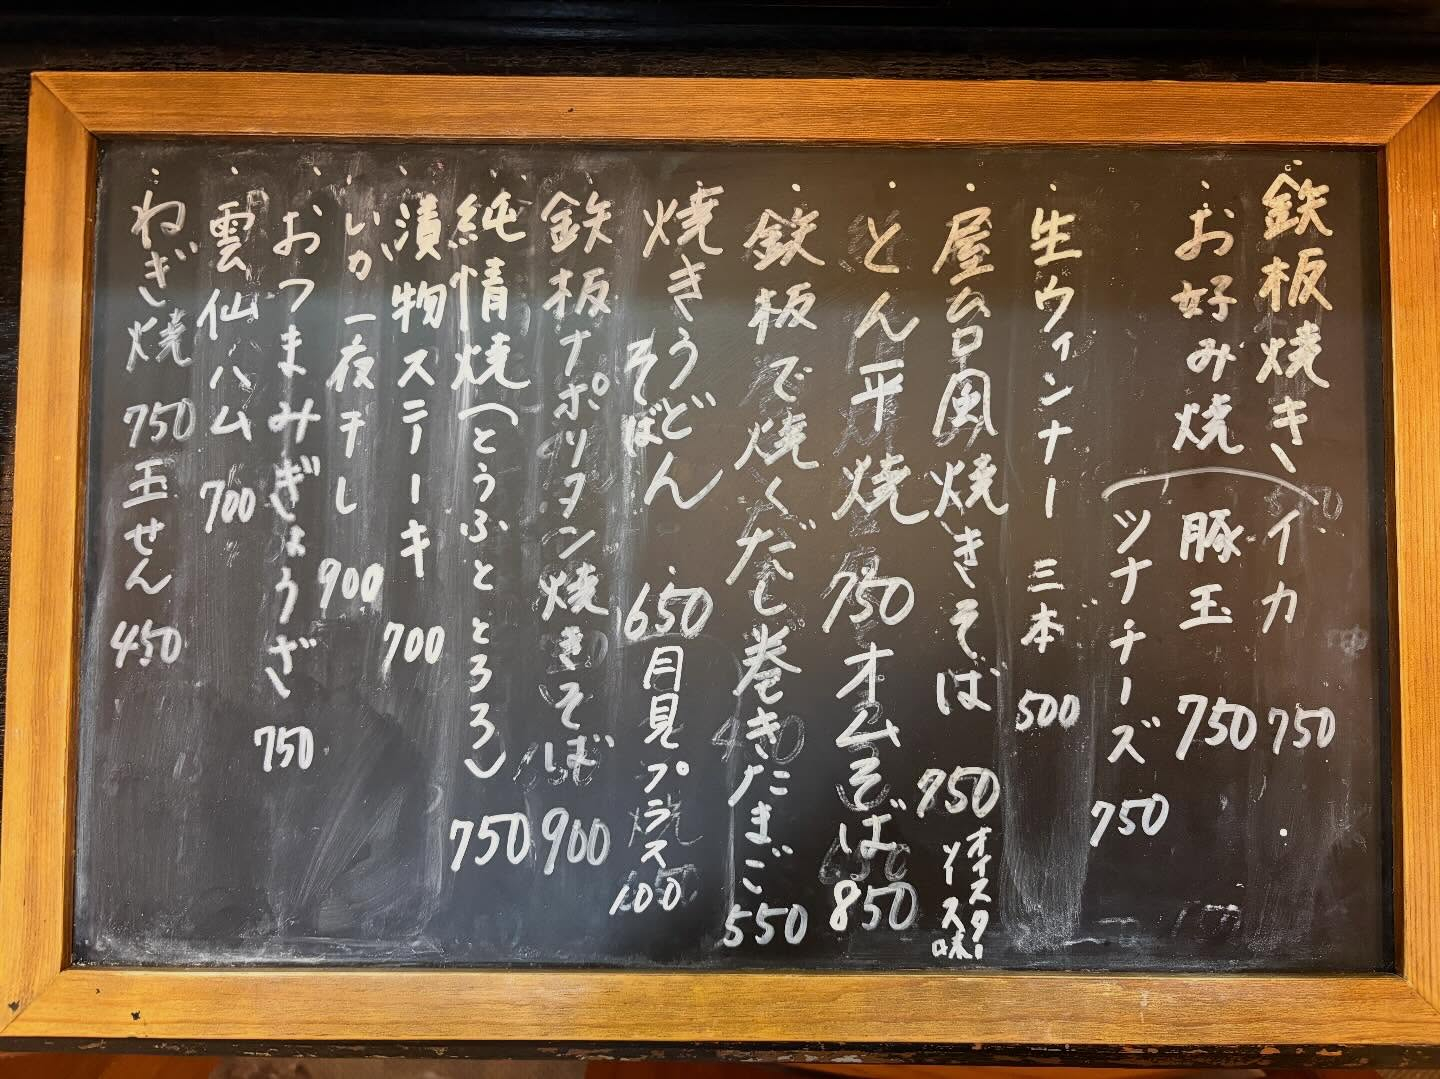 鉄板焼き イカ 750
お好み焼 豚玉 750
ツナチーズ 750
生ウィンナー 三本 500
屋台風焼きそば 750 オイスターソース味
とん平焼 750 オムそば 850
鉄板で焼くだし巻きたまご 550
焼きうどん そば 650 月見プラス 100
鉄板ナポリタン焼きそば 900
純情焼(とうふととろろ) 750
漬物ステーキ 700
いか一夜干し 900
おつまみぎょうざ 750
雲仙ハム 700
ねぎ焼 750 玉せん 450